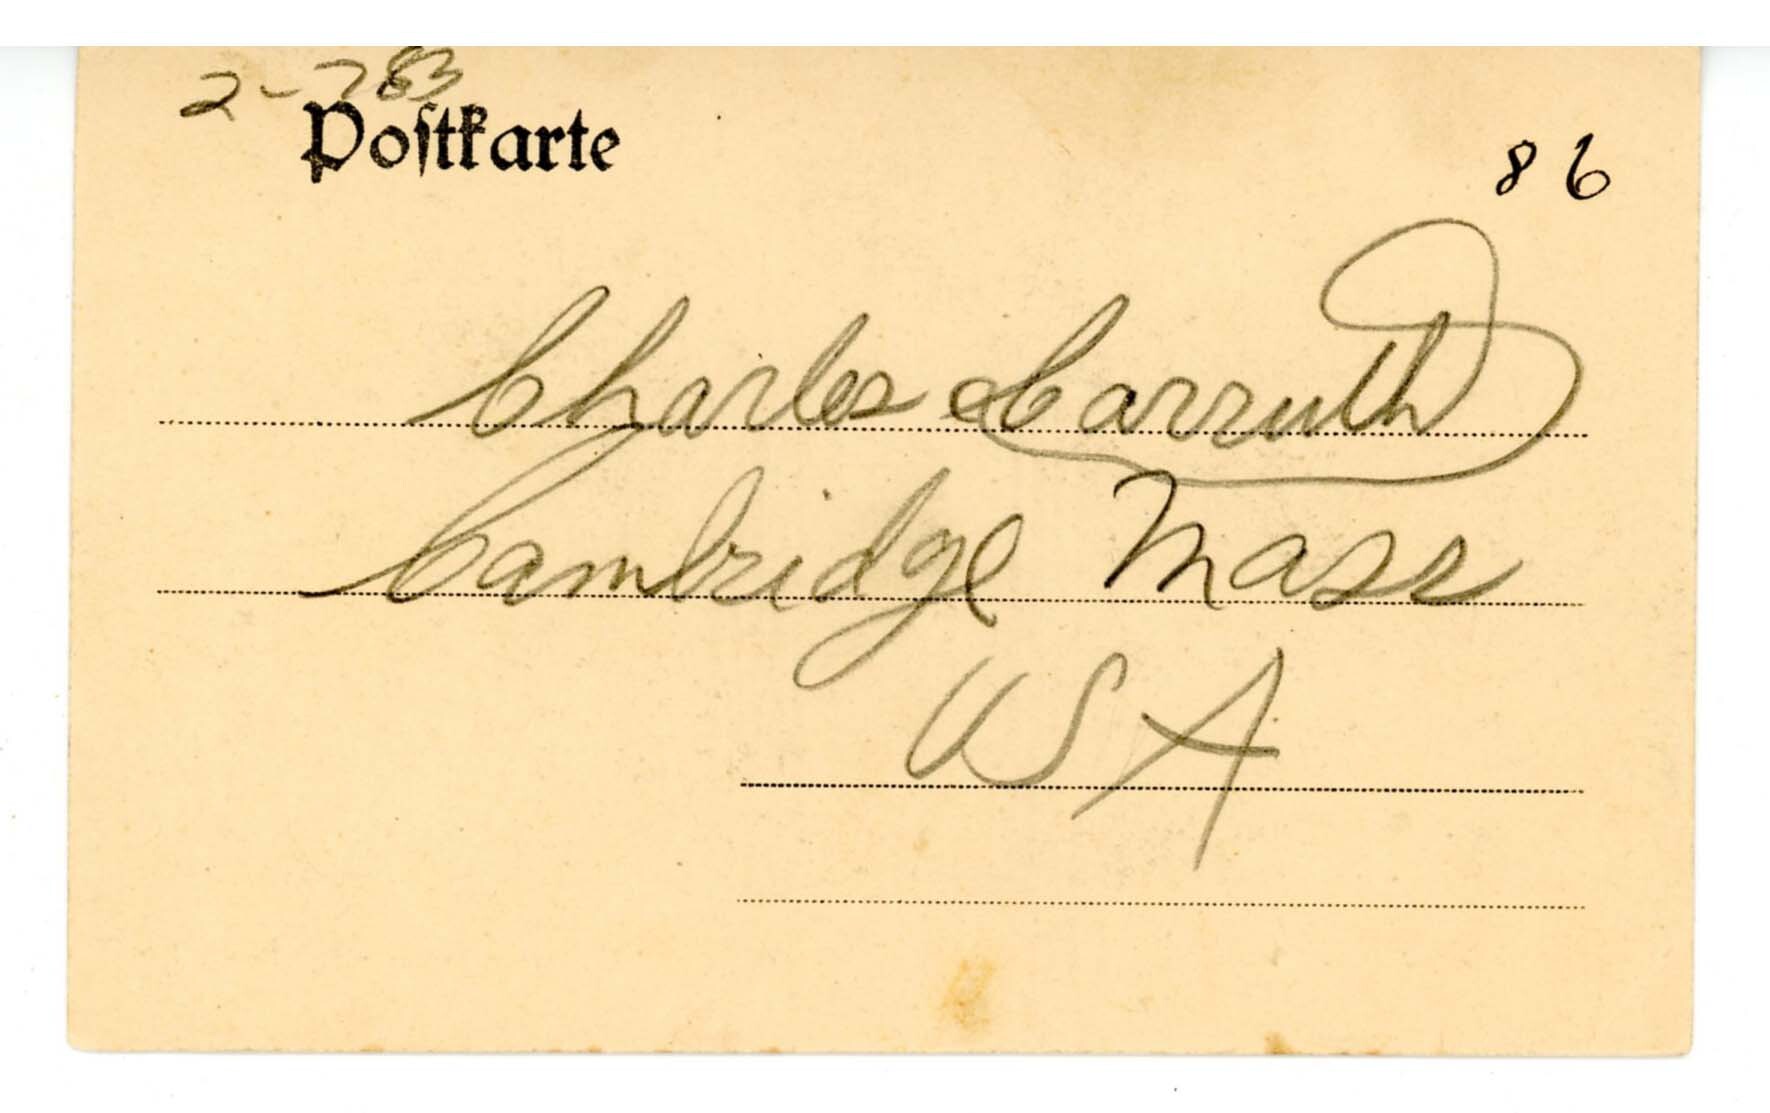 2-783
Postkarte
86
Charles Carruth
Cambridge Mass
USA